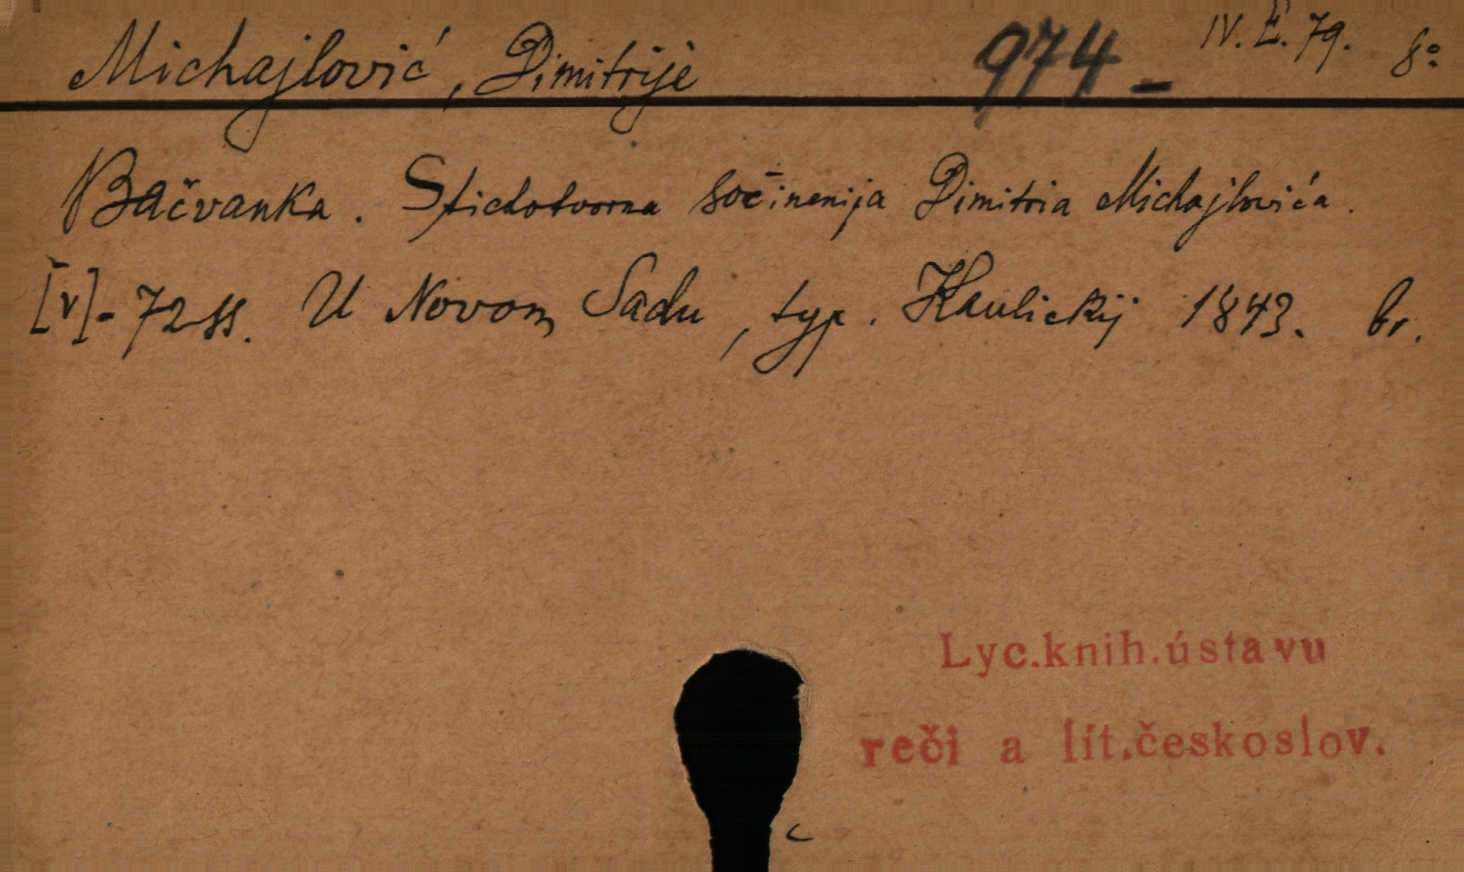 Michajlović, Dimitrije 974- IV. E. 79. 8°
Bačvanka. Stichotvorna sočinenija Dimitria Michajlovića.
[V]-72 ss. U Novom Sadu, typ. Kaulickij 1843. br.
Lyc.knih.ústavu
reči a lit.českoslov.